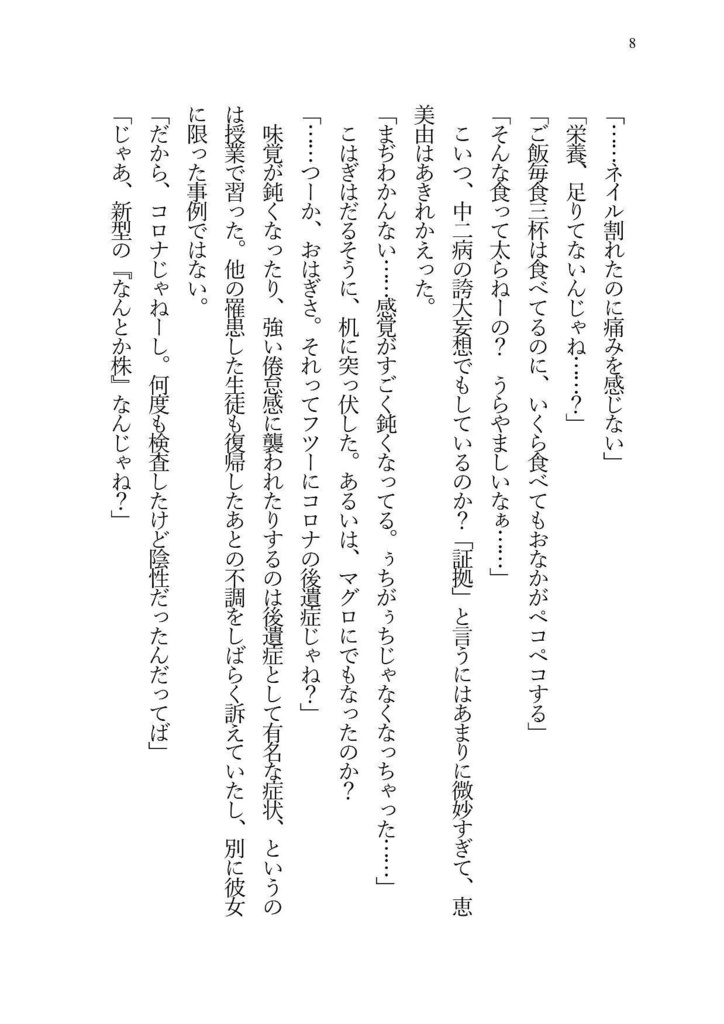 8
「……ネイル割れたのに痛みを感じない」
「栄養、足りてないんじゃね……？」
「ご飯毎食三杯は食べてるのに、いくら食べてもおなかがペコペコする」
「そんな食って太らねーの？　うらやましいなぁ……」
　こいつ、中二病の誇大妄想でもしているのか？「証拠」と言うにはあまりに微妙すぎて、恵
美由はあきれかえった。
「まぢわかんない……感覚がすごく鈍くなってる。ぅちがぅちじゃなくなっちゃった……」
　こはぎはだるそうに、机に突っ伏した。あるいは、マグロにでもなったのか？
「……つーか、おはぎさ。それってフツーにコロナの後遺症じゃね？」
　味覚が鈍くなったり、強い倦怠感に襲われたりするのは後遺症として有名な症状、というの
は授業で習った。他の罹患した生徒も復帰したあとの不調をしばらく訴えていたし、別に彼女
に限った事例ではない。
「だから、コロナじゃねーし。何度も検査したけど陰性だったんだってば」
「じゃあ、新型の『なんとか株』なんじゃね？」